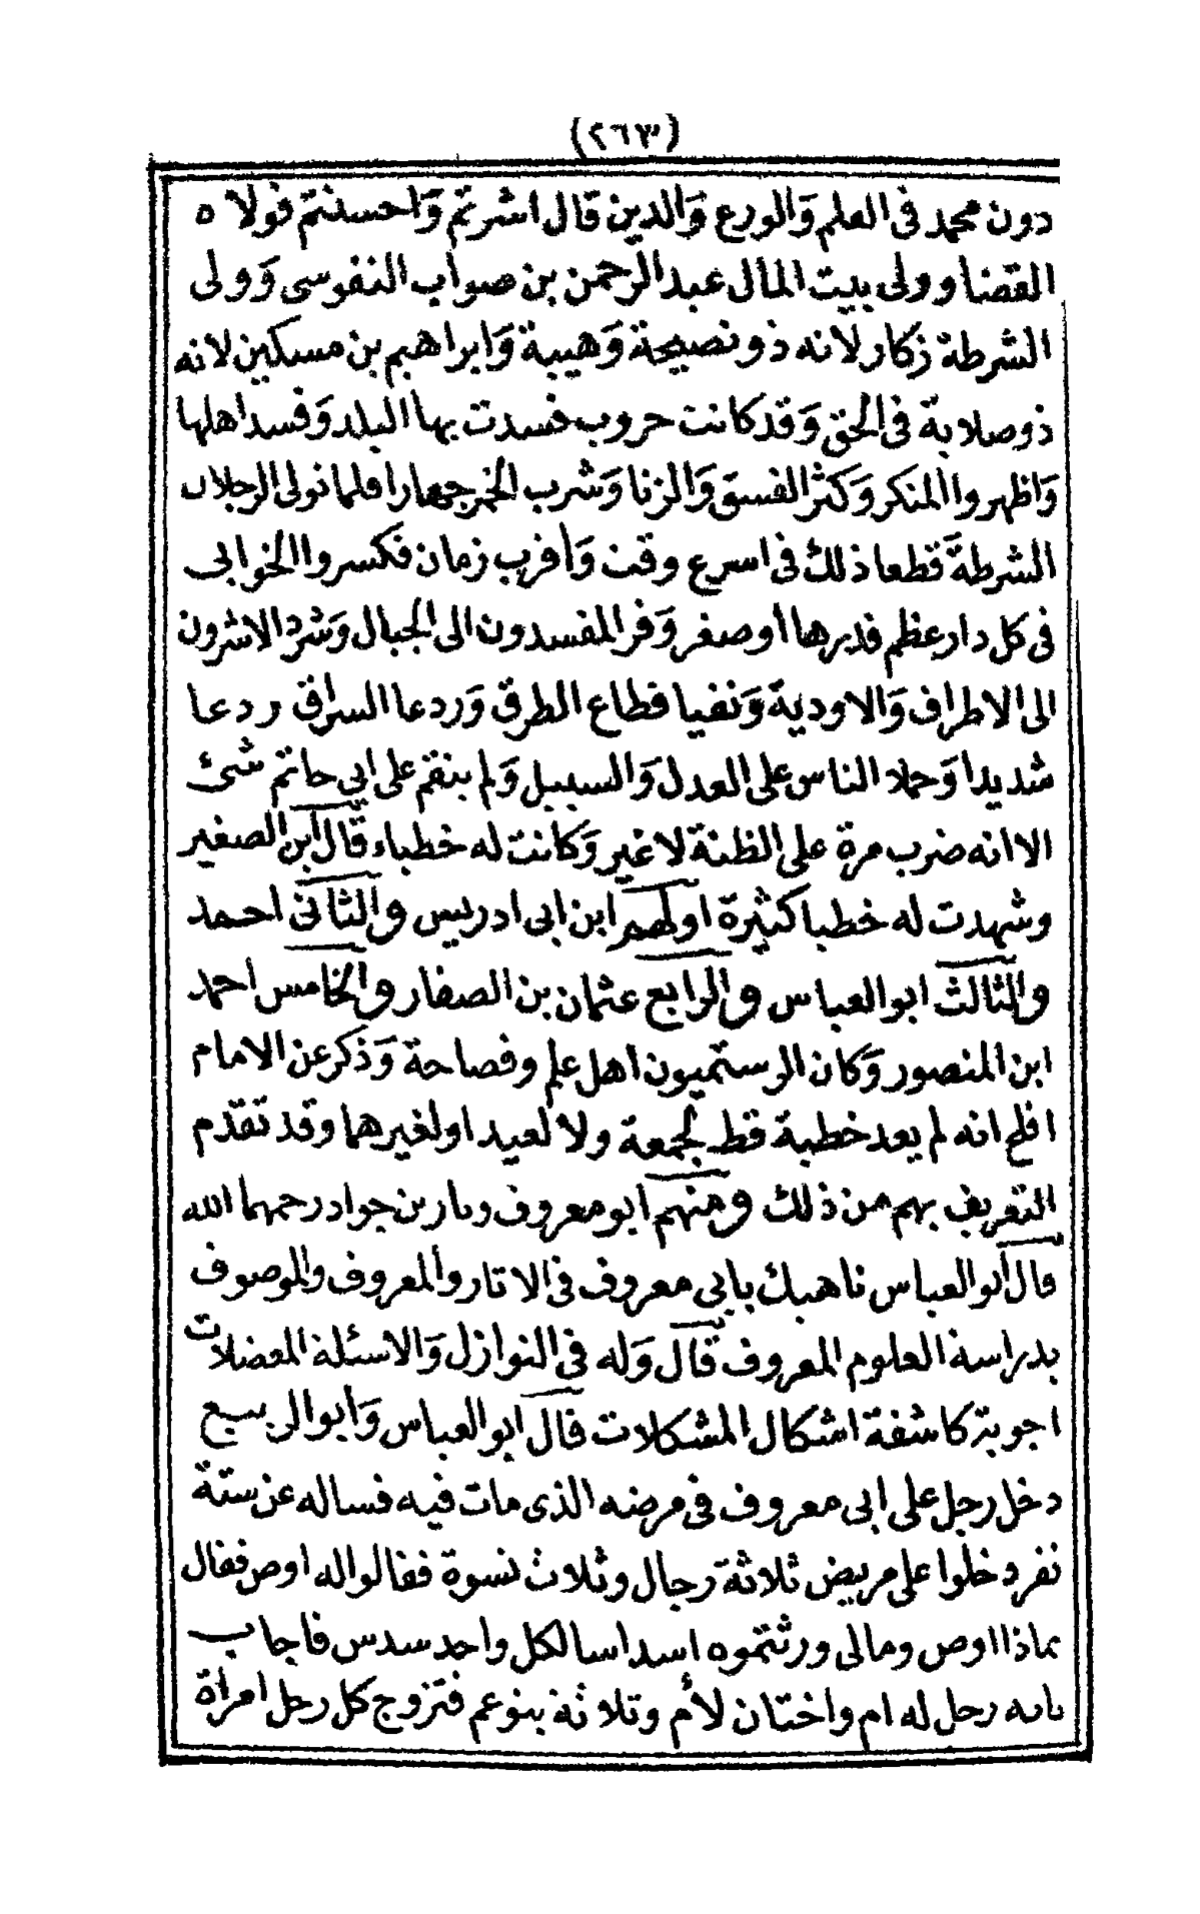 (٢٦٣)
دون محمد فى العلم وَالورع وَالدين قال اشرتم وَاحسنتم فولاه
القضاء وولى بيت المال عبد الرحمن بن صواب النفوسى وَولى
الشرطة زكار لانه ذو نصيحة وَهيبة وَابراهيم بن مسكين لانه
ذو صلابة فى الحق وَقد كانت حروب فسدت بها البلد وَفسد اهلها
وَاظهروا المنكر وَكثر الفسق وَالزنا وَشرب الخمر جهارا فلما تولى الرجلان
الشرطةَ قطعا ذلك فى اسرع وقت وَاقرب زمان فكسروا الخوابى
فى كل دار عظم قدرها أو صغر وَفر المفسدون الى الجبال وَشرد الاشرون
الى الاطراف وَالاودية وَنفيا قطاع الطرق وَردعا السراق ردعا
شديدا وَحملا الناس على العدل وَالسبيل وَلم ينقم على ابي حاتم شئ
الا انه ضرب مرة على الظنة لا غير وَكانت له خطباء قال ابن الصغير
وشهدت له خطبا كثيرة اولهم ابن ابى ادريس والثانى احمد
والثالث ابو العباس والرابع عثمان بن الصفار والخامس احمد
ابن المنصور وَكان الرستميون اهل علم وفصاحة وَذكر عن الامام
افلح انه لم يعد خطبة قط لجمعة ولا لعيد او لغيرهما وقد تقدم
التعريف بهم من ذلك ومنهم ابو معروف ويار بن جواد رحمهما الله
قال ابو العباس ناهيك بابي معروف فى الاثار والمعروف والموصوف
بدراسة العلوم المعروف قال وَله فى النوازل وَالاسئلة المعضلات
اجوبة كاشفة اشكال المشكلات قال ابو العباس وَابو الربيع
دخل رجل على ابى معروف فى مرضه الذى مات فيه فساله عن ستة
نفر دخلوا على مريض ثلاثة رجال وثلاث نسوة فقالوا له اوص فقال
بماذا اوص ومالى ورثتموه اسداسا لكل واحد سدس فاجاب
بانه رجل له ام واختان لأم وثلاثة بنو عم فتزوج كل رجل امراة